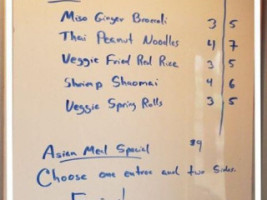 Miso Ginger Broccoli 3 5
Thai Peanut Noodles 4 7
Veggie Fried Red Rice 3 5
Shrimp Shaomai 4 6
Veggie Spring Rolls 3 5
Asian Meal Special $9
Choose one entree and two sides.